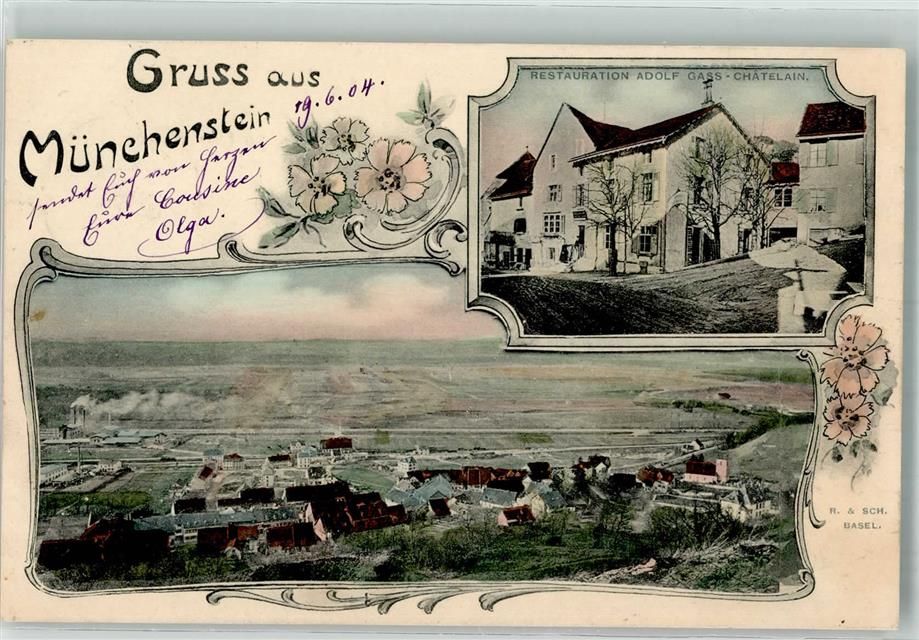 Gruss aus
Münchenstein
19.6.04.
sendet Euch von Herzen
Eure Cousine
Olga.
RESTAURATION ADOLF GASS - CHÂTELAIN.
R. & SCH.
BASEL.